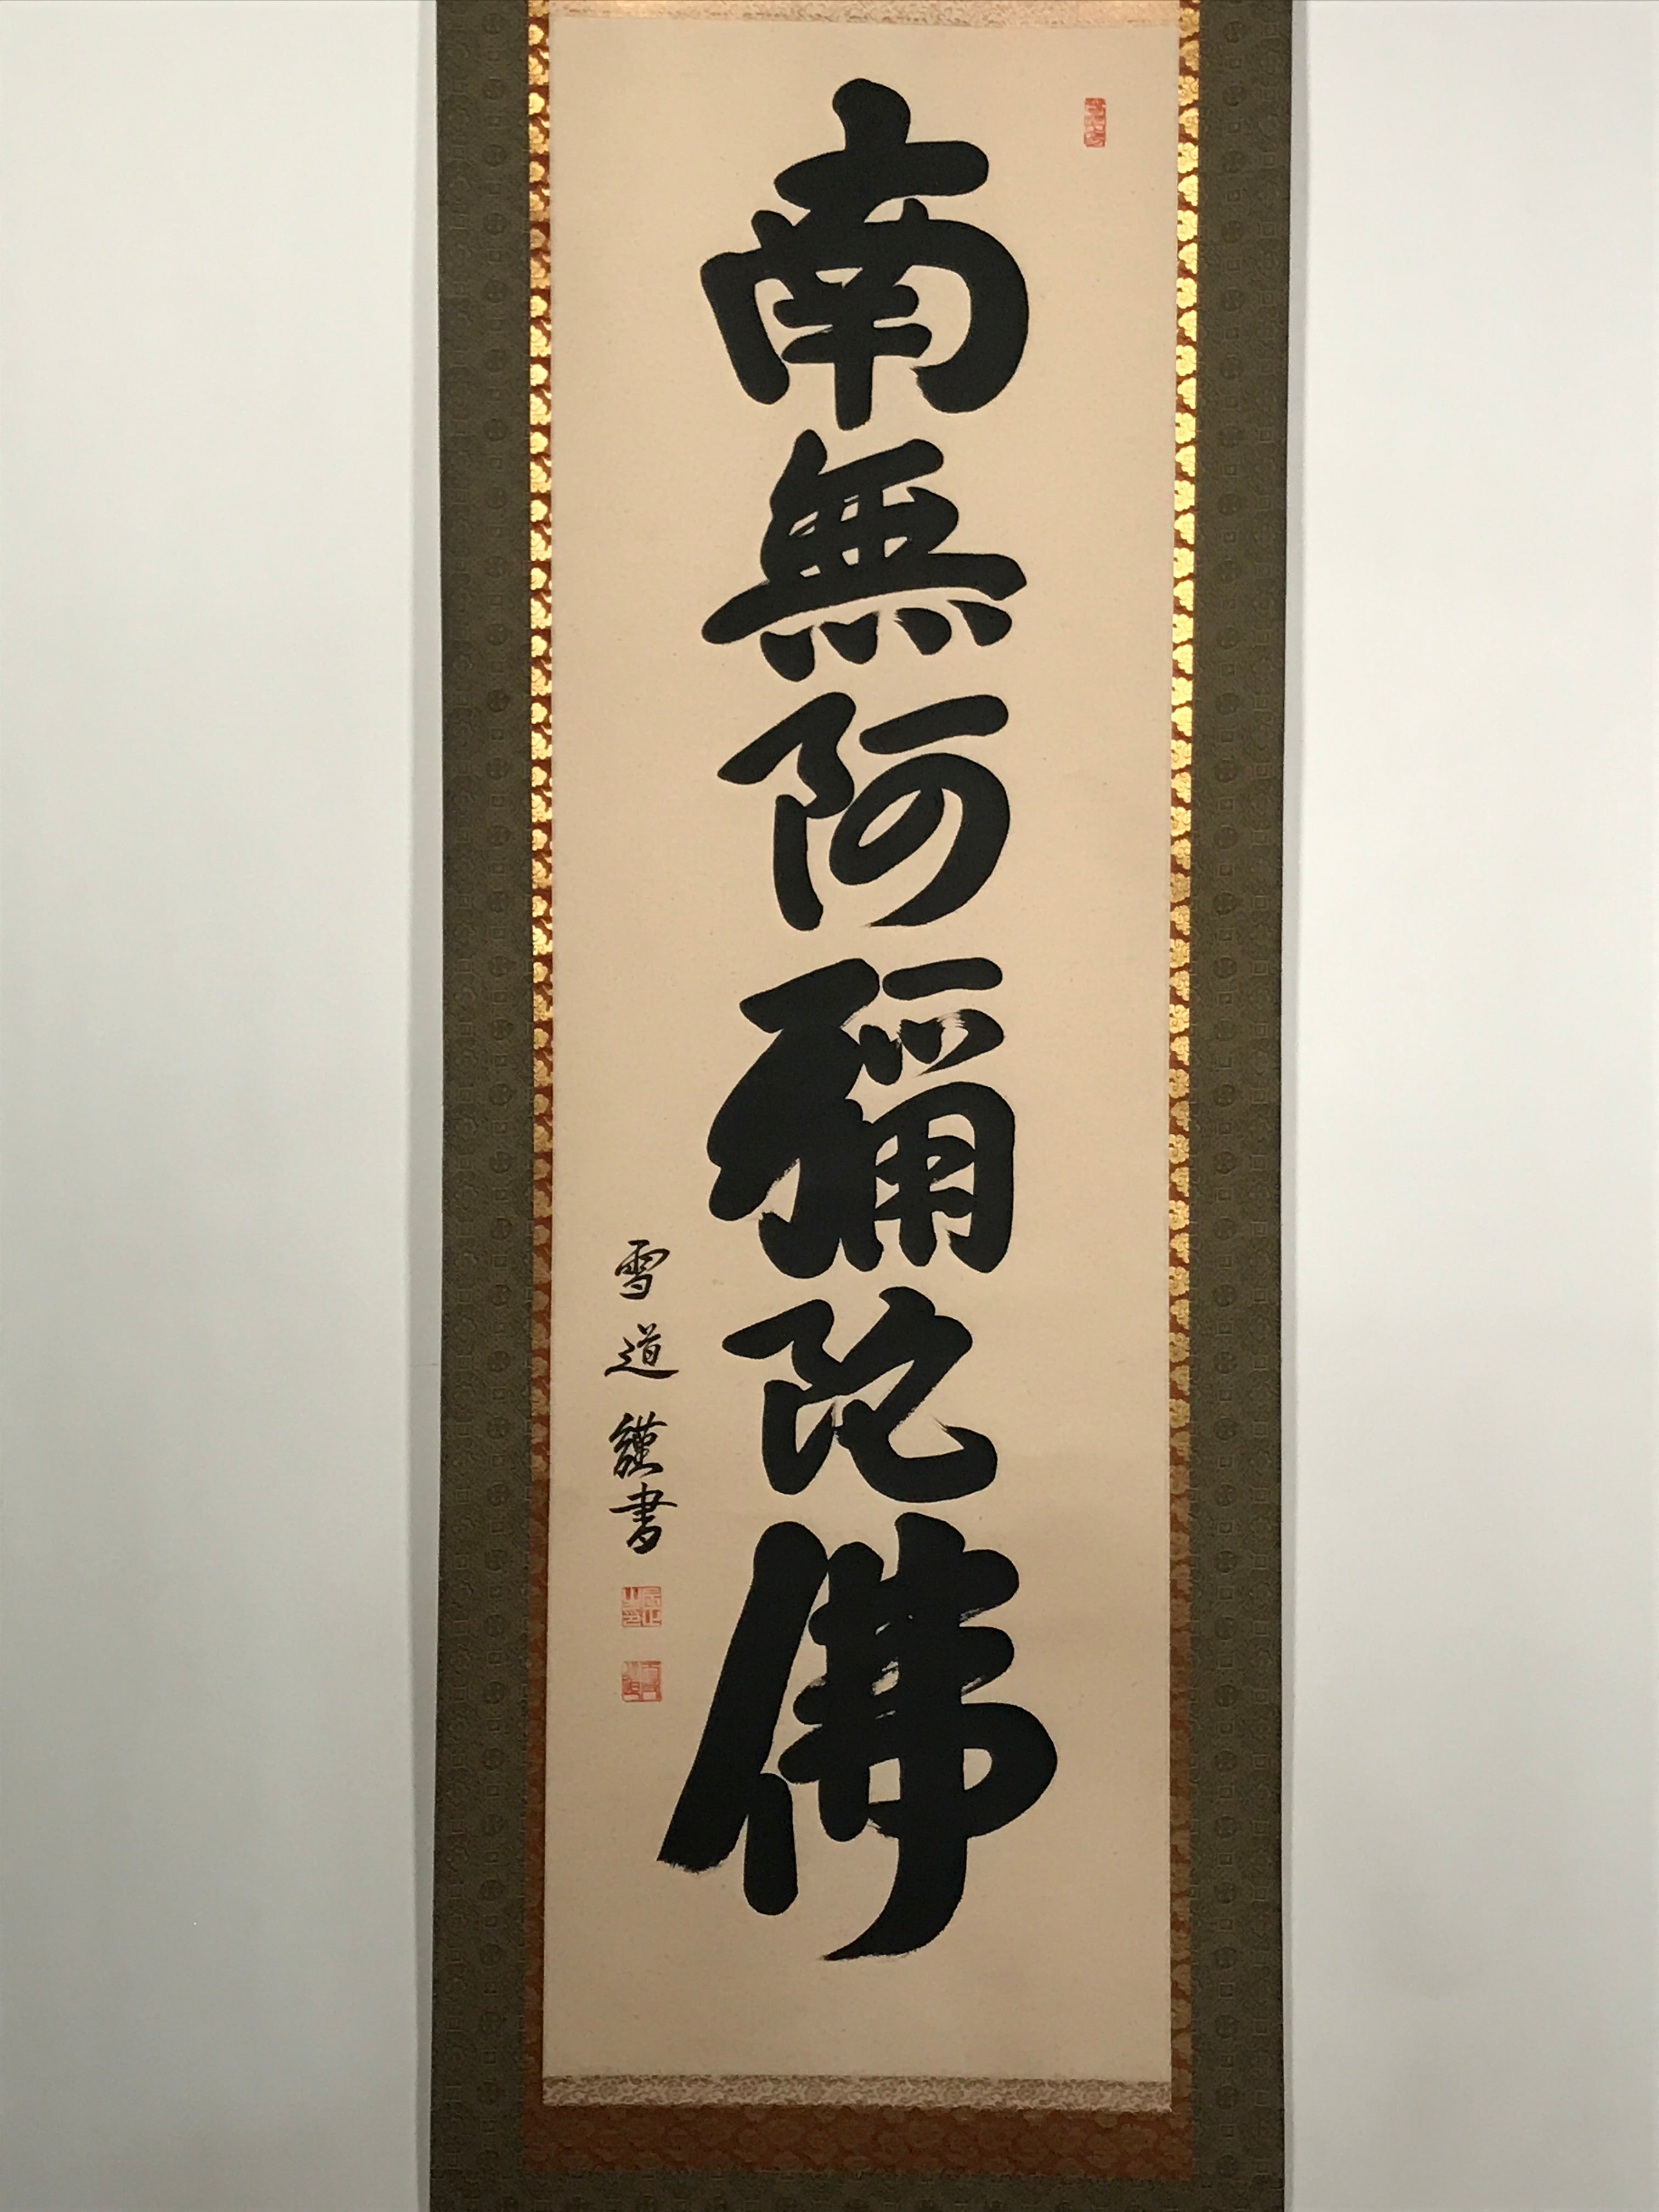 南無阿彌陀佛
雪道謹書